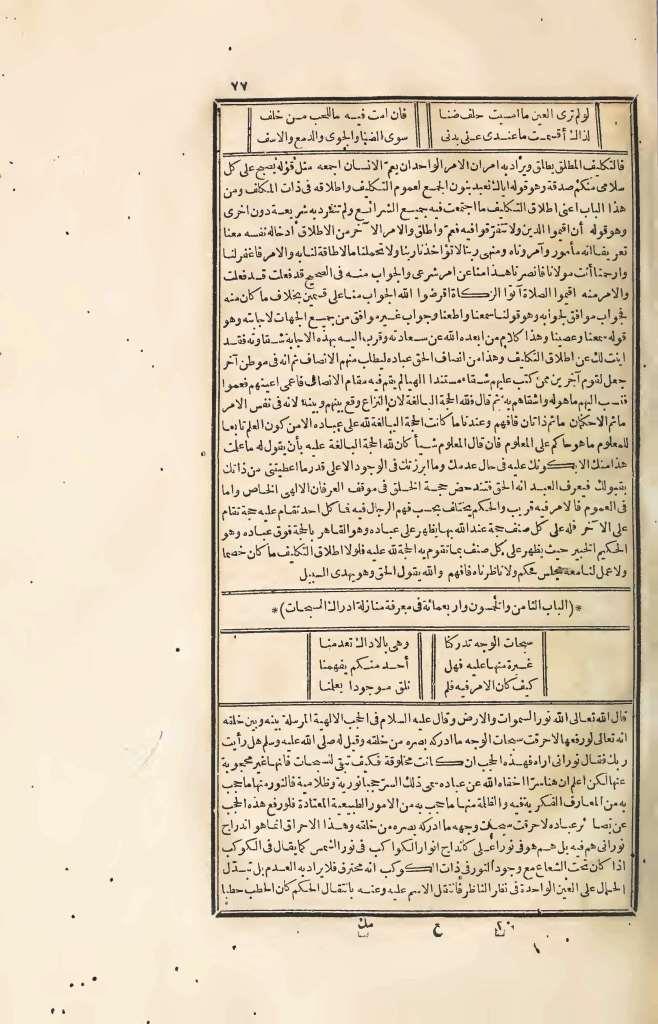 ٧٧
لولم ترى العين ما أمسيت حلف ضنا فان امت فيه ما للعب من خلف
لذاك أقسمت ما عندى عنى بدنى سوى الضنا والجوى والدمع والاسف
فالتكليف المطلق يطلق ويراد به امران الامر الواحد ان يعم الانسان اجمعه مثل قوله يصبح على كل
سلامى منكم صدقة وهو قوله اياك نعبد بنون الجمع لعموم التكليف واطلاقه فى ذات المكلف ومن
هذا الباب اعنى اطلاق التكليف ما اجتمعت فيه جميع الشرائع ولم تنفرد به شريعة دون اخرى
وهو قوله أن اقيموا الدين ولا تتفرقوا فيه فعم واطلق والامر الآخر من الاطلاق ادخاله نفسه معنا
تعريفا انه مأمور وآمر وناه ومنهى ربنا لا تؤاخذنا ربنا ولا تحملنا ما لا طاقة لنا به والامر فاغفر لنا
وارحمنا أنت مولانا فانصرنا هذا منا عن امر شرعى والجواب منه فى الصحيح قد فعلت قد فعلت
والامر منه اقيموا الصلاة آتوا الزكاة اقرضوا الله الجواب منا على قسمين بخلاف ما كان منه
فجواب موافق لجوابه وهو قولنا سمعنا واطعنا وجواب غير موافق من جميع الجهات لاجابته وهو
قوله سمعنا وعصينا وهذا كلام من ابعده الله عن سعادته وقربها اليه بهذه الاجابة شقاوته فقد
ابنت لك عن اطلاق التكليف وهذا من انصاف الحق عباده ليطلب منهم الانصاف ثم انه فى موطن آخر
جعل لقوم آخرين ممن كتب عليهم شقاء مستندا الهيا لم يقم فيه مقام الانصاف فاعمى اعينهم فعموا
فنسب اليهم ما هو له واشقاهم به ثم قال فلله الحجة البالغة لان النزاع وقع بينهم وبينه لانه فى نفس الامر
ما ثم الا حكمان ما ثم ذاتان فافهم وعندنا ما كانت الحجة البالغة لله على عباده الا من كون العلم تابعا
للمعلوم ما هو حاكم على المعلوم فان قال المعلوم شيأ كان لله الحجة البالغة عليه بأن يقول له ما علمت
هذا منك الا بكونك عليه فى حال عدمك وما ابرزتك فى الوجود الا على قدر ما اعطيتنى من ذاتك
بقبولك فيعرف العبد انه الحق فتندحض حجة الخلق فى موقف العرفان الالهى الخاص واما
فى العموم فالامر فيه قريب والحكم يختلف بحسب فهم الرجال فيه فما كل احد تقام عليه حجة تقام
على الآخر فله على كل صنف حجة عند الله بها يظهر على عباده وهو القاهر بالحجة فوق عباده وهو
الحكيم الخبير حيث يظهر على كل صنف بما تقوم به الحجة لله عليه فلولا اطلاق التكليف ما كان خصما
ولا عمل لنا معه مجلس حكم ولا ناظرناه فافهم والله يقول الحق وهو يهدى السبيل
*(الباب الثامن والخمسون واربعمائة فى معرفة منازلة ادراك السبحات)*
سبحات الوجه تدركنا وهى بالادراك تعدمنا
غيرة منها عليه فهل أحد منكم يفهمنا
كيف كان الامر فيه فلم نلق موجودا يعلمنا
قال الله تعالى الله نور السموات والارض وقال عليه السلام فى الحجب الالهية المرسلة بينه وبين خلقه
انه تعالى لو رفعها لاحرقت سبحات الوجه ما ادركه بصره من خلقه وقيل له صلى الله عليه وسلم هل رأيت
ربك فقال نورانى اراه فهذه الحجب ان كانت مخلوقة فكيف تبقى للسبحات فانها غير محجوبة
عنها لكن اعلم ان هنا سرا اخفاه الله عن عباده سمى ذلك السر حجبا نورية وظلامية فالنور منها ما حجب
به من المعارف الفكرية فيه والظلمة منها ما حجب به من الامور الطبيعية المعتادة فلو رفع هذه الحجب
عن بصائر عباده لاحرقت سبحات وجهه ما ادركه بصره من خلقه وهذا الاحراق انما هو اندراج
نورانى هم فيه بل هم هو فى نور أعلى كاندراج انوار الكواكب فى نور الشمس كما يقال فى الكوكب
اذا كان تحت الشعاع مع وجود النور فى ذات الكوكب انه محترق فلا يراد به العدم بل تبدل
الحال على العين الواحدة فى نظر الناظر فانتقل الاسم عليه وعنه بانتقال الحكم كان الحطب حطبا